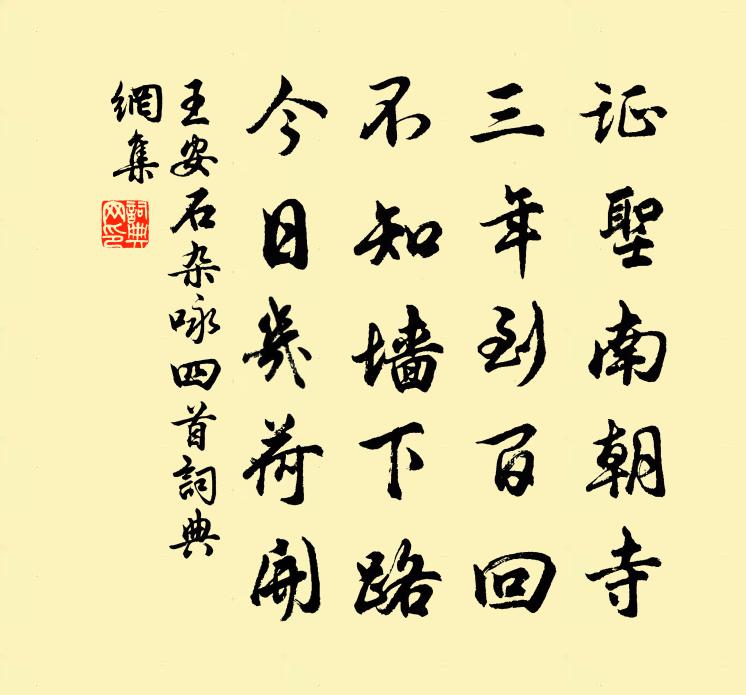 证聖南朝寺
三年到百回
不知墙下路
今日幾荷開
王安石杂咏四首詞典
網集
詞典网印